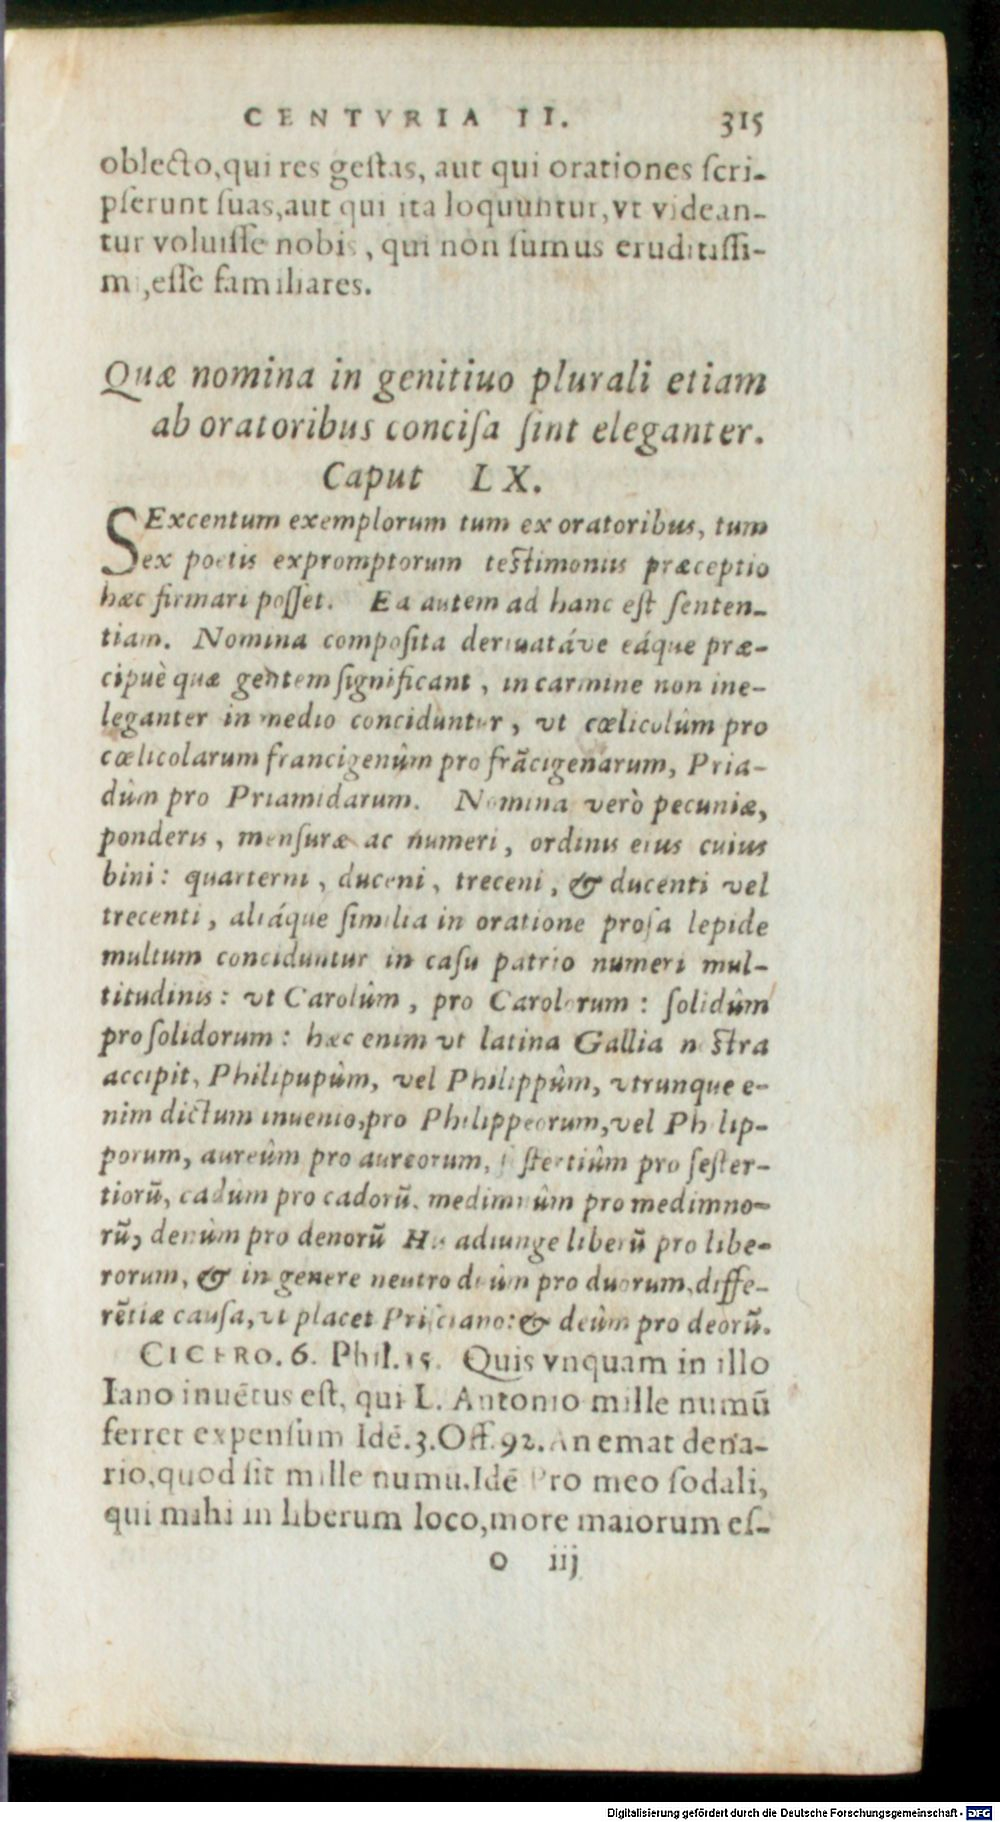 CENTVRIA II. 315
oblecto, qui res gestas, aut qui orationes scri-
pserunt suas, aut qui ita loquuntur, vt videan-
tur voluisse nobis, qui non sumus eruditissi-
mi, esse familiares.
Quæ nomina in genitiuo plurali etiam
ab oratoribus concisa sint eleganter.
Caput LX.
SExcentum exemplorum tum ex oratoribus, tum
ex poetis expromptorum testimoniis præceptio
hæc firmari posset. Ea autem ad hanc est senten-
tiam. Nomina composita deriuatáve eáque præ-
cipuè quæ gentem significant, in carmine non ine-
leganter in medio conciduntur, vt cœlicolûm pro
cœlicolarum francigenûm pro frãcigenarum, Pria-
dûm pro Priamidarum. Nomina verò pecuniæ,
ponderis, mensuræ ac numeri, ordinis eius cuius
bini: quarterni, duceni, treceni, & ducenti vel
trecenti, aliáque similia in oratione prosa lepide
multum conciduntur in casu patrio numeri mul-
titudinis: vt Carolûm, pro Carolorum: solidûm
pro solidorum: hæc enim vt latina Gallia nostra
accipit, Philipupûm, vel Philippûm, vtrunque e-
nim dictum inuenio, pro Philippeorum, vel Philip-
porum, aureûm pro aureorum, sestertiûm pro sester-
tiorũ, cadum pro cadorũ, medimnûm pro medimno-
rũ, denûm pro denorũ His adiunge liberũ pro libe-
rorum, & in genere neutro duûm pro duorum, diffe-
rẽtiæ causa, vt placet Prisciano: & deûm pro deorũ.
CICERO. 6. Phil. 15. Quis vnquam in illo
Iano inuẽtus est, qui L. Antonio mille numũ
ferret expensum Idẽ. 3. Off. 92. An emat dena-
rio, quod sit mille numũ. Idẽ Pro meo sodali,
qui mihi in liberum loco, more maiorum es-
o iij
Digitalisierung gefördert durch die Deutsche Forschungsgemeinschaft - DFG